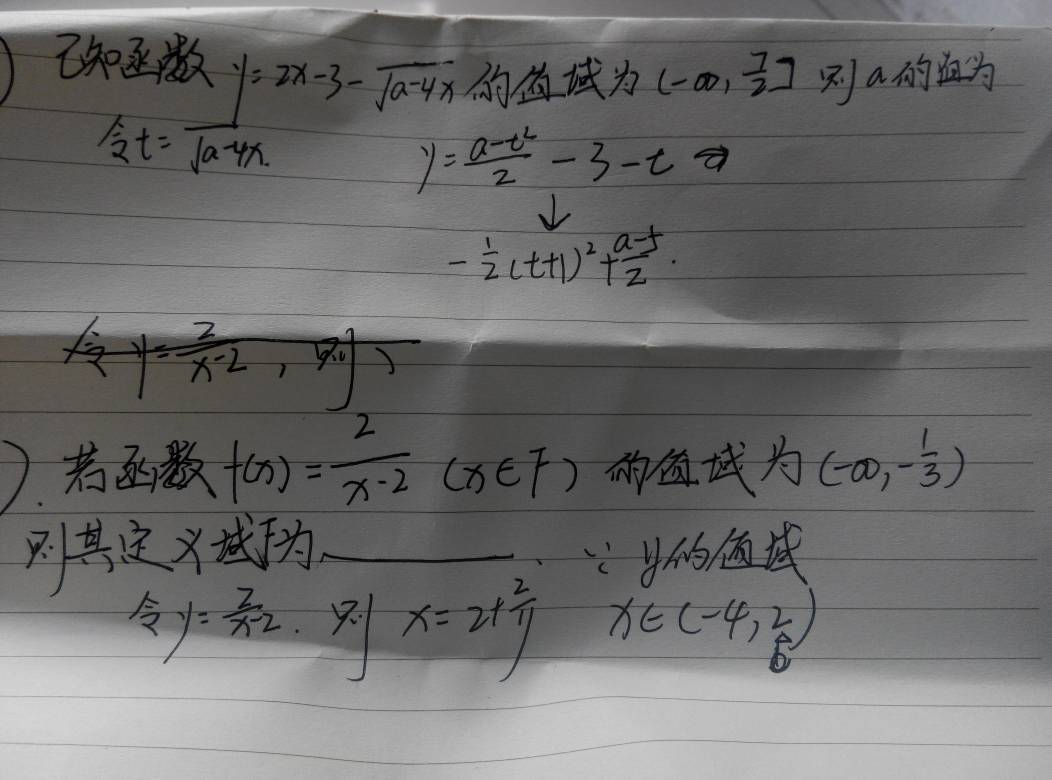 ) 已知函数 y=2x-3-√a-4x 的值域为 (-∞, 7/2] 则 a 的值为
令 t=√a-4x. y=(a-t²)/2 -3-t
↓
-1/2(t+1)²+(a-5)/2.
令 y=2/(x-2), 则 、
). 若函数 f(x)=2/(x-2) (x∈F) 的值域为 (-∞,-1/3)
则其定义域F为 ______. ∵ y的值域
令 y=2/(x-2). 则 x=2+2/y x∈(-4,2)